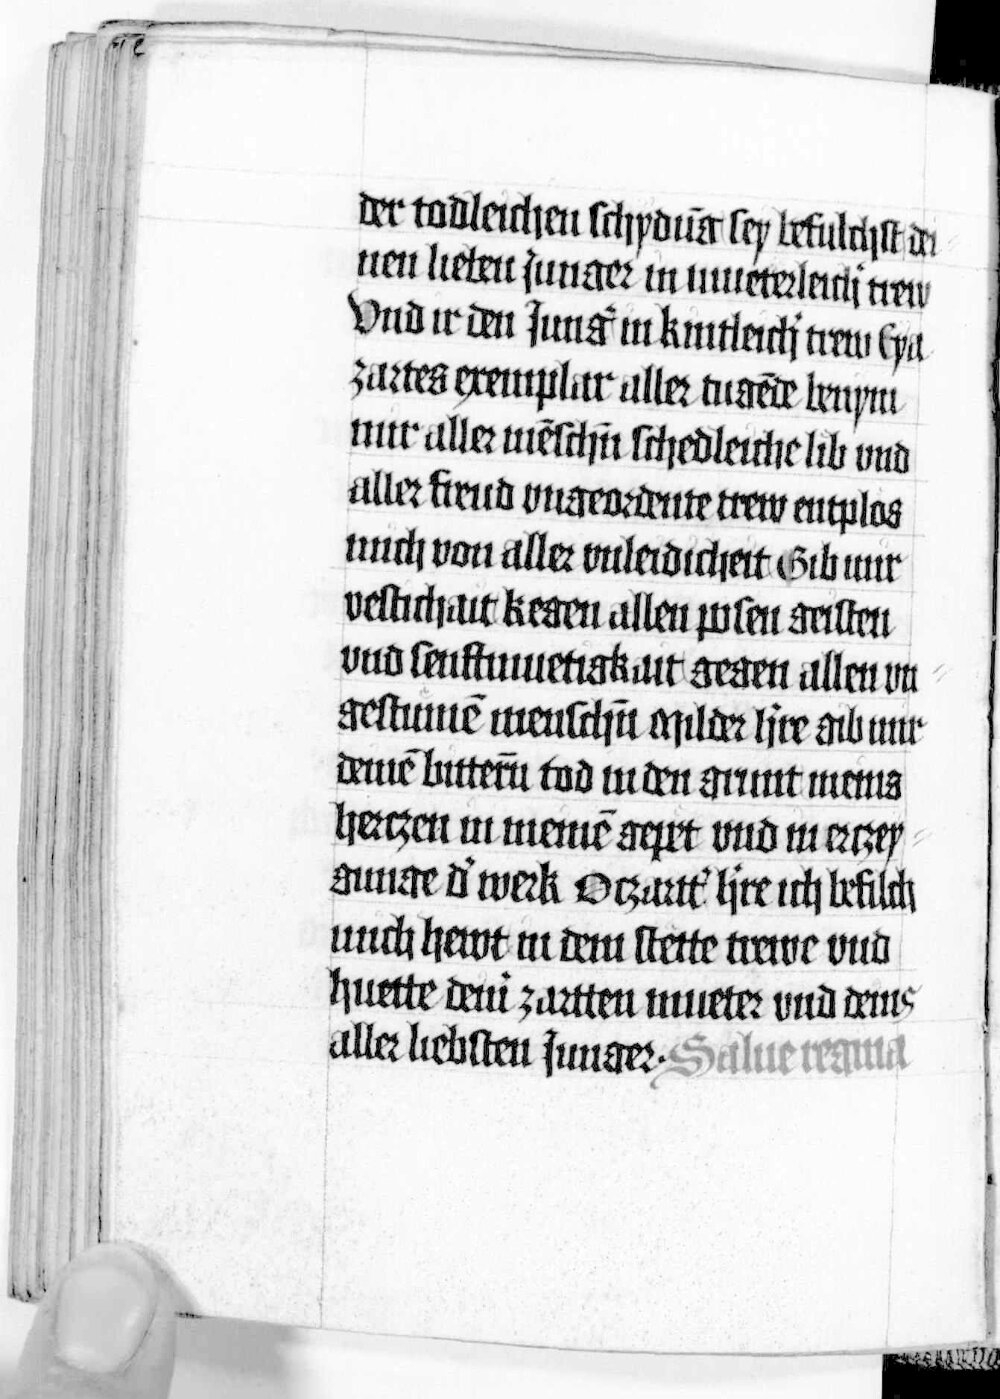 der todleichen schydūg sey befulchst dei
nen lieben Junger in mueterleichr̄ trew
Vnd ir den Jungr̄ in kintleichr̄ trew Eya
zartes exemplar aller tugēde benym
mir aller mēschn̄ schedleiche lib vnd
aller freud vngeordente trew entplos
mich von aller vnleidicheit Gib mir
vestichait kegen allen posen geisten
vnd senftmuetigkait gegen allen vn
gestumē menschn̄ Milder hr̄re gib mir
deinē bittern̄ tod in den grunt meins
herczen in meinē gepet vnd in erczey
gunge dr̄ werk O czarttr̄ hr̄re ich befilch
mich hewt in dem stette trewe vnd
huette deinr̄ zartten mueter vnd deins
aller liebsten Junger. Salue regina